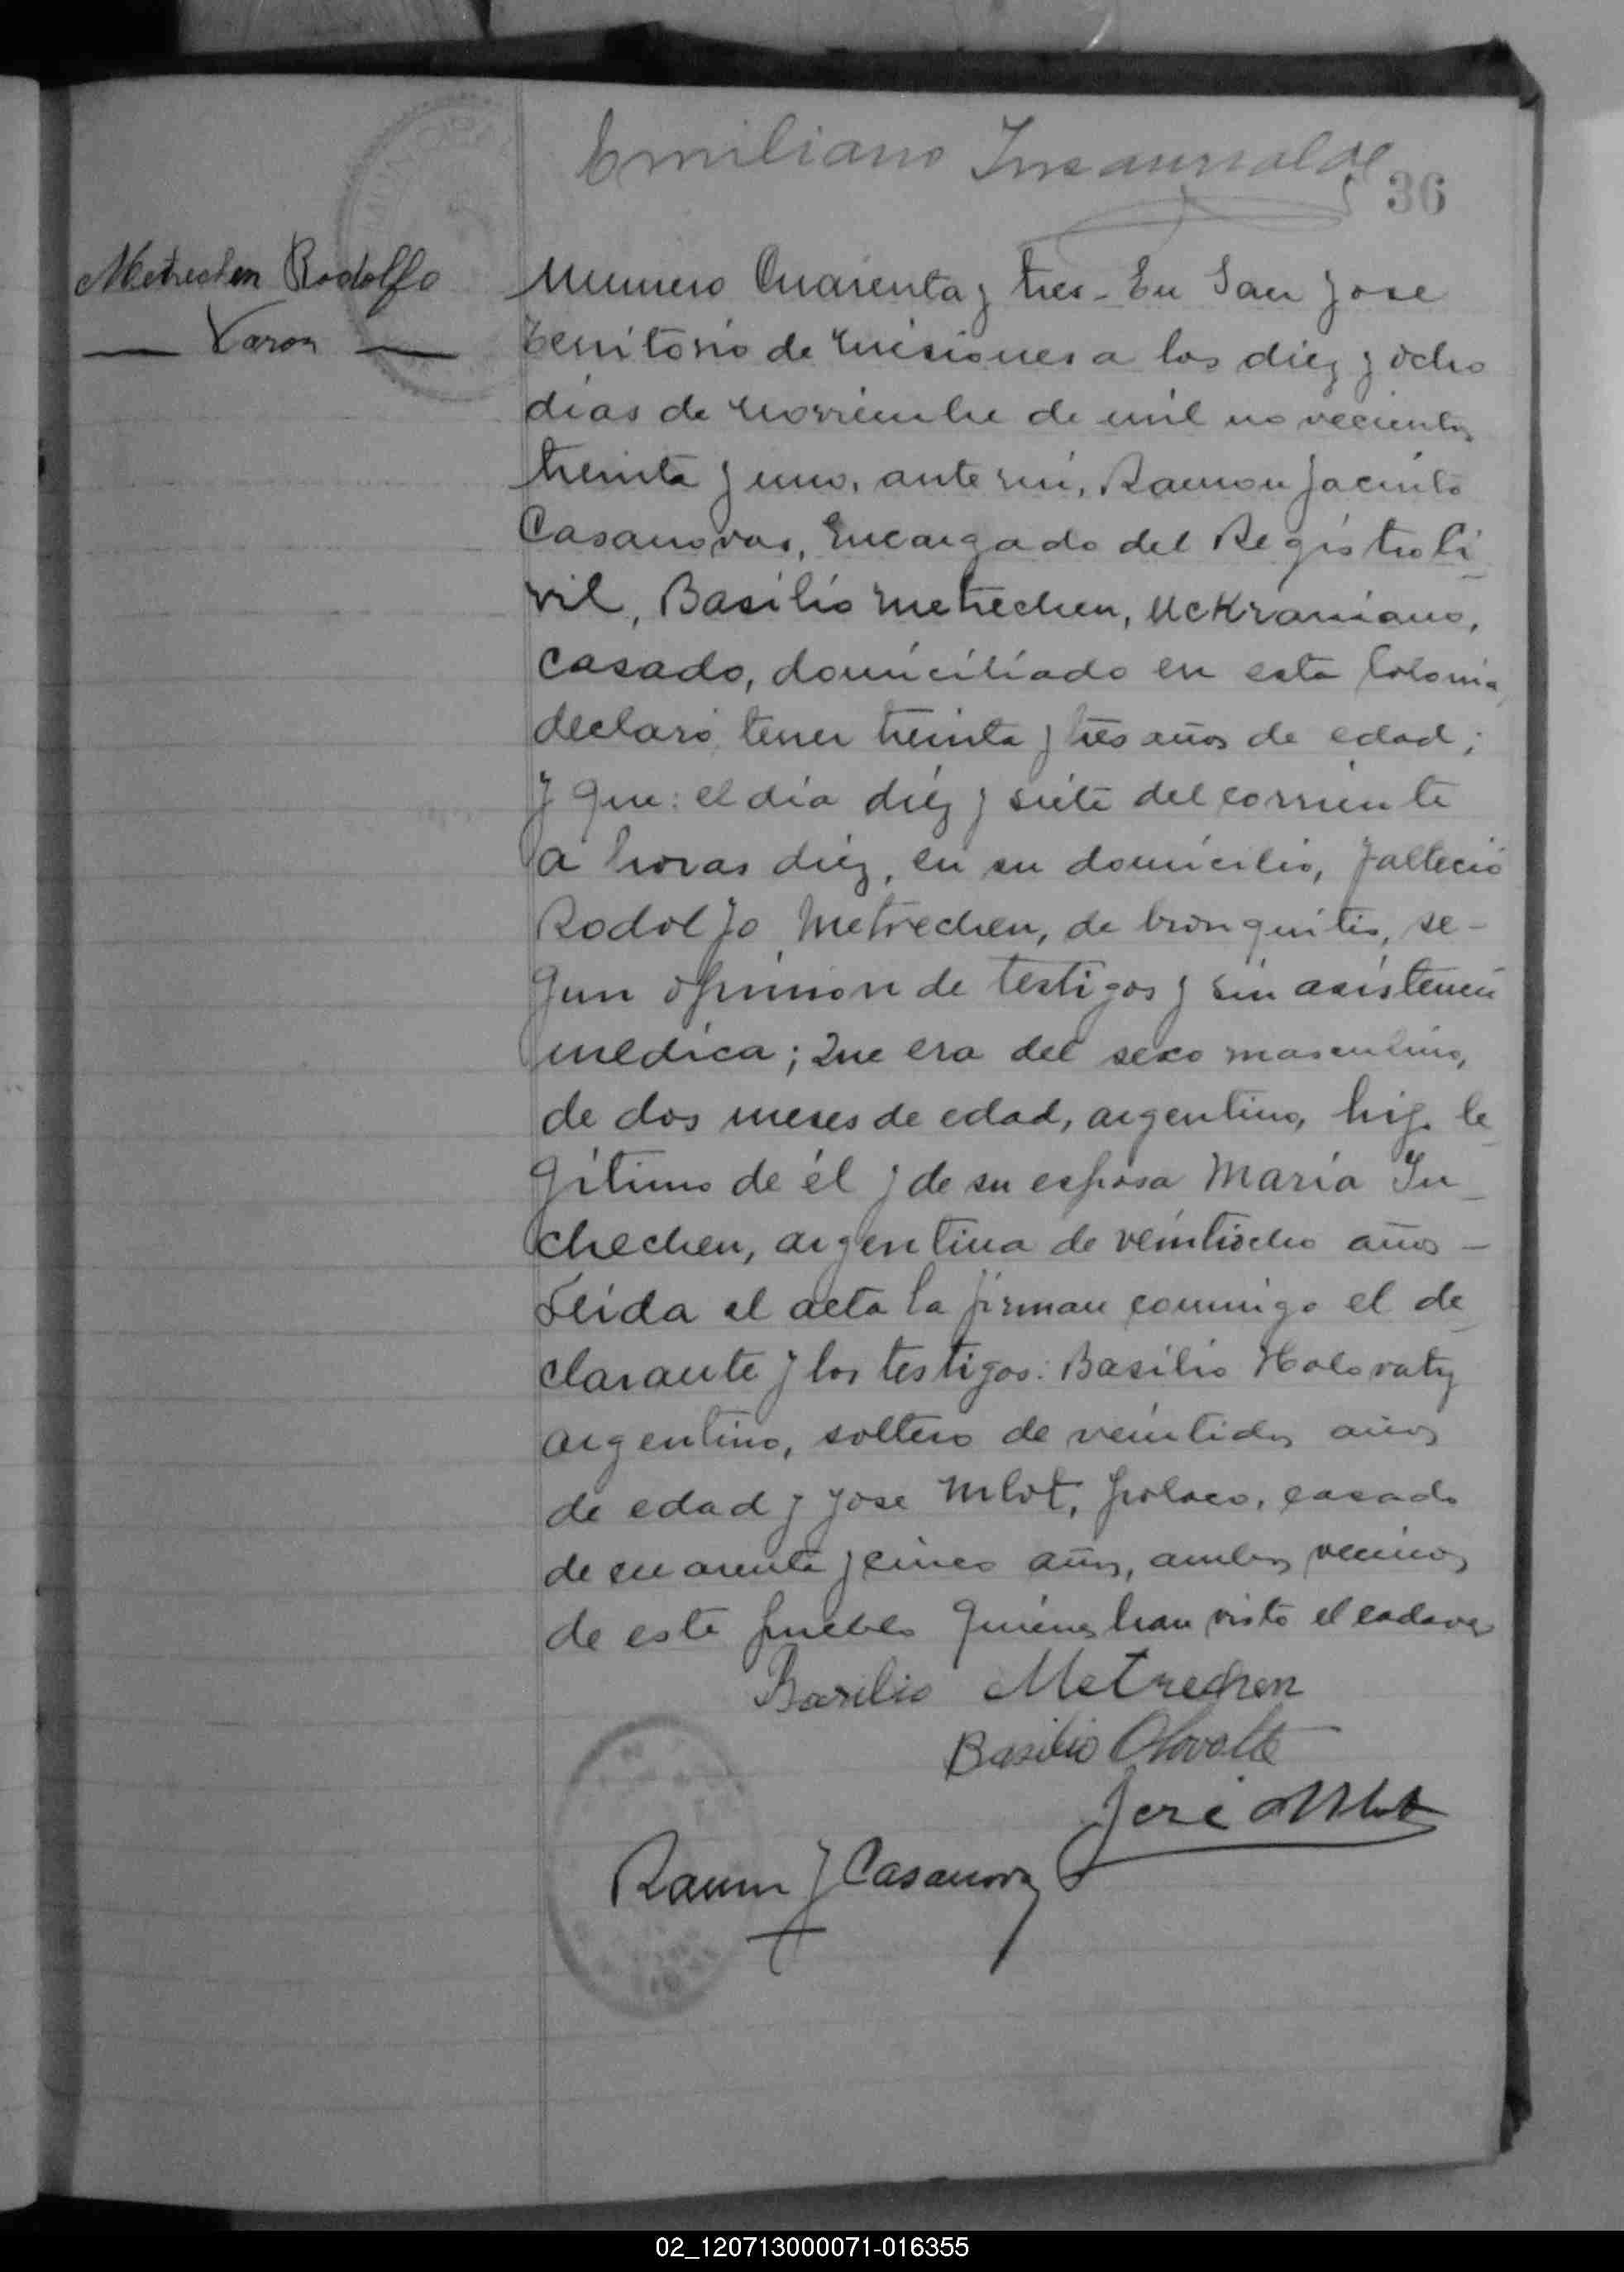 Emiliano Insaurralde
36
Metrechen Rodolfo
Varon
Numero Cuarenta y tres - En San Jose
territorio de Misiones a los diez y ocho
dias de noviembre de mil novecientos
treinta y uno, ante mi, Ramon Jacinto
Casanovas, Encargado del Registro Ci-
vil, Basilio Metrechen, Uckraniano,
casado, domiciliado en esta Colonia,
declaró tener treinta y tres años de edad;
y que: el día diez y siete del corriente
a horas diez, en su domicilio, falleció
Rodolfo Metrechen, de bronquitis, se-
gun opinion de testigos y sin asistencia
medica; Que era del sexo masculino,
de dos meses de edad, argentino, hijo le-
gitimo de él y de su esposa Maria Iu-
chechen, argentina de veintiocho años -
Leida el acta la firman conmigo el de-
clarante y los testigos: Basilio Holovaty
argentino, soltero de veintidos años
de edad y Jose Mlot, polaco, casado
de cuarenta y cinco años, ambos vecinos
de este pueblo quienes han visto el cadaver
Basilio Metrechen
Basilio
José Mlot
Ramon J Casanovas
02_120713000071-016355